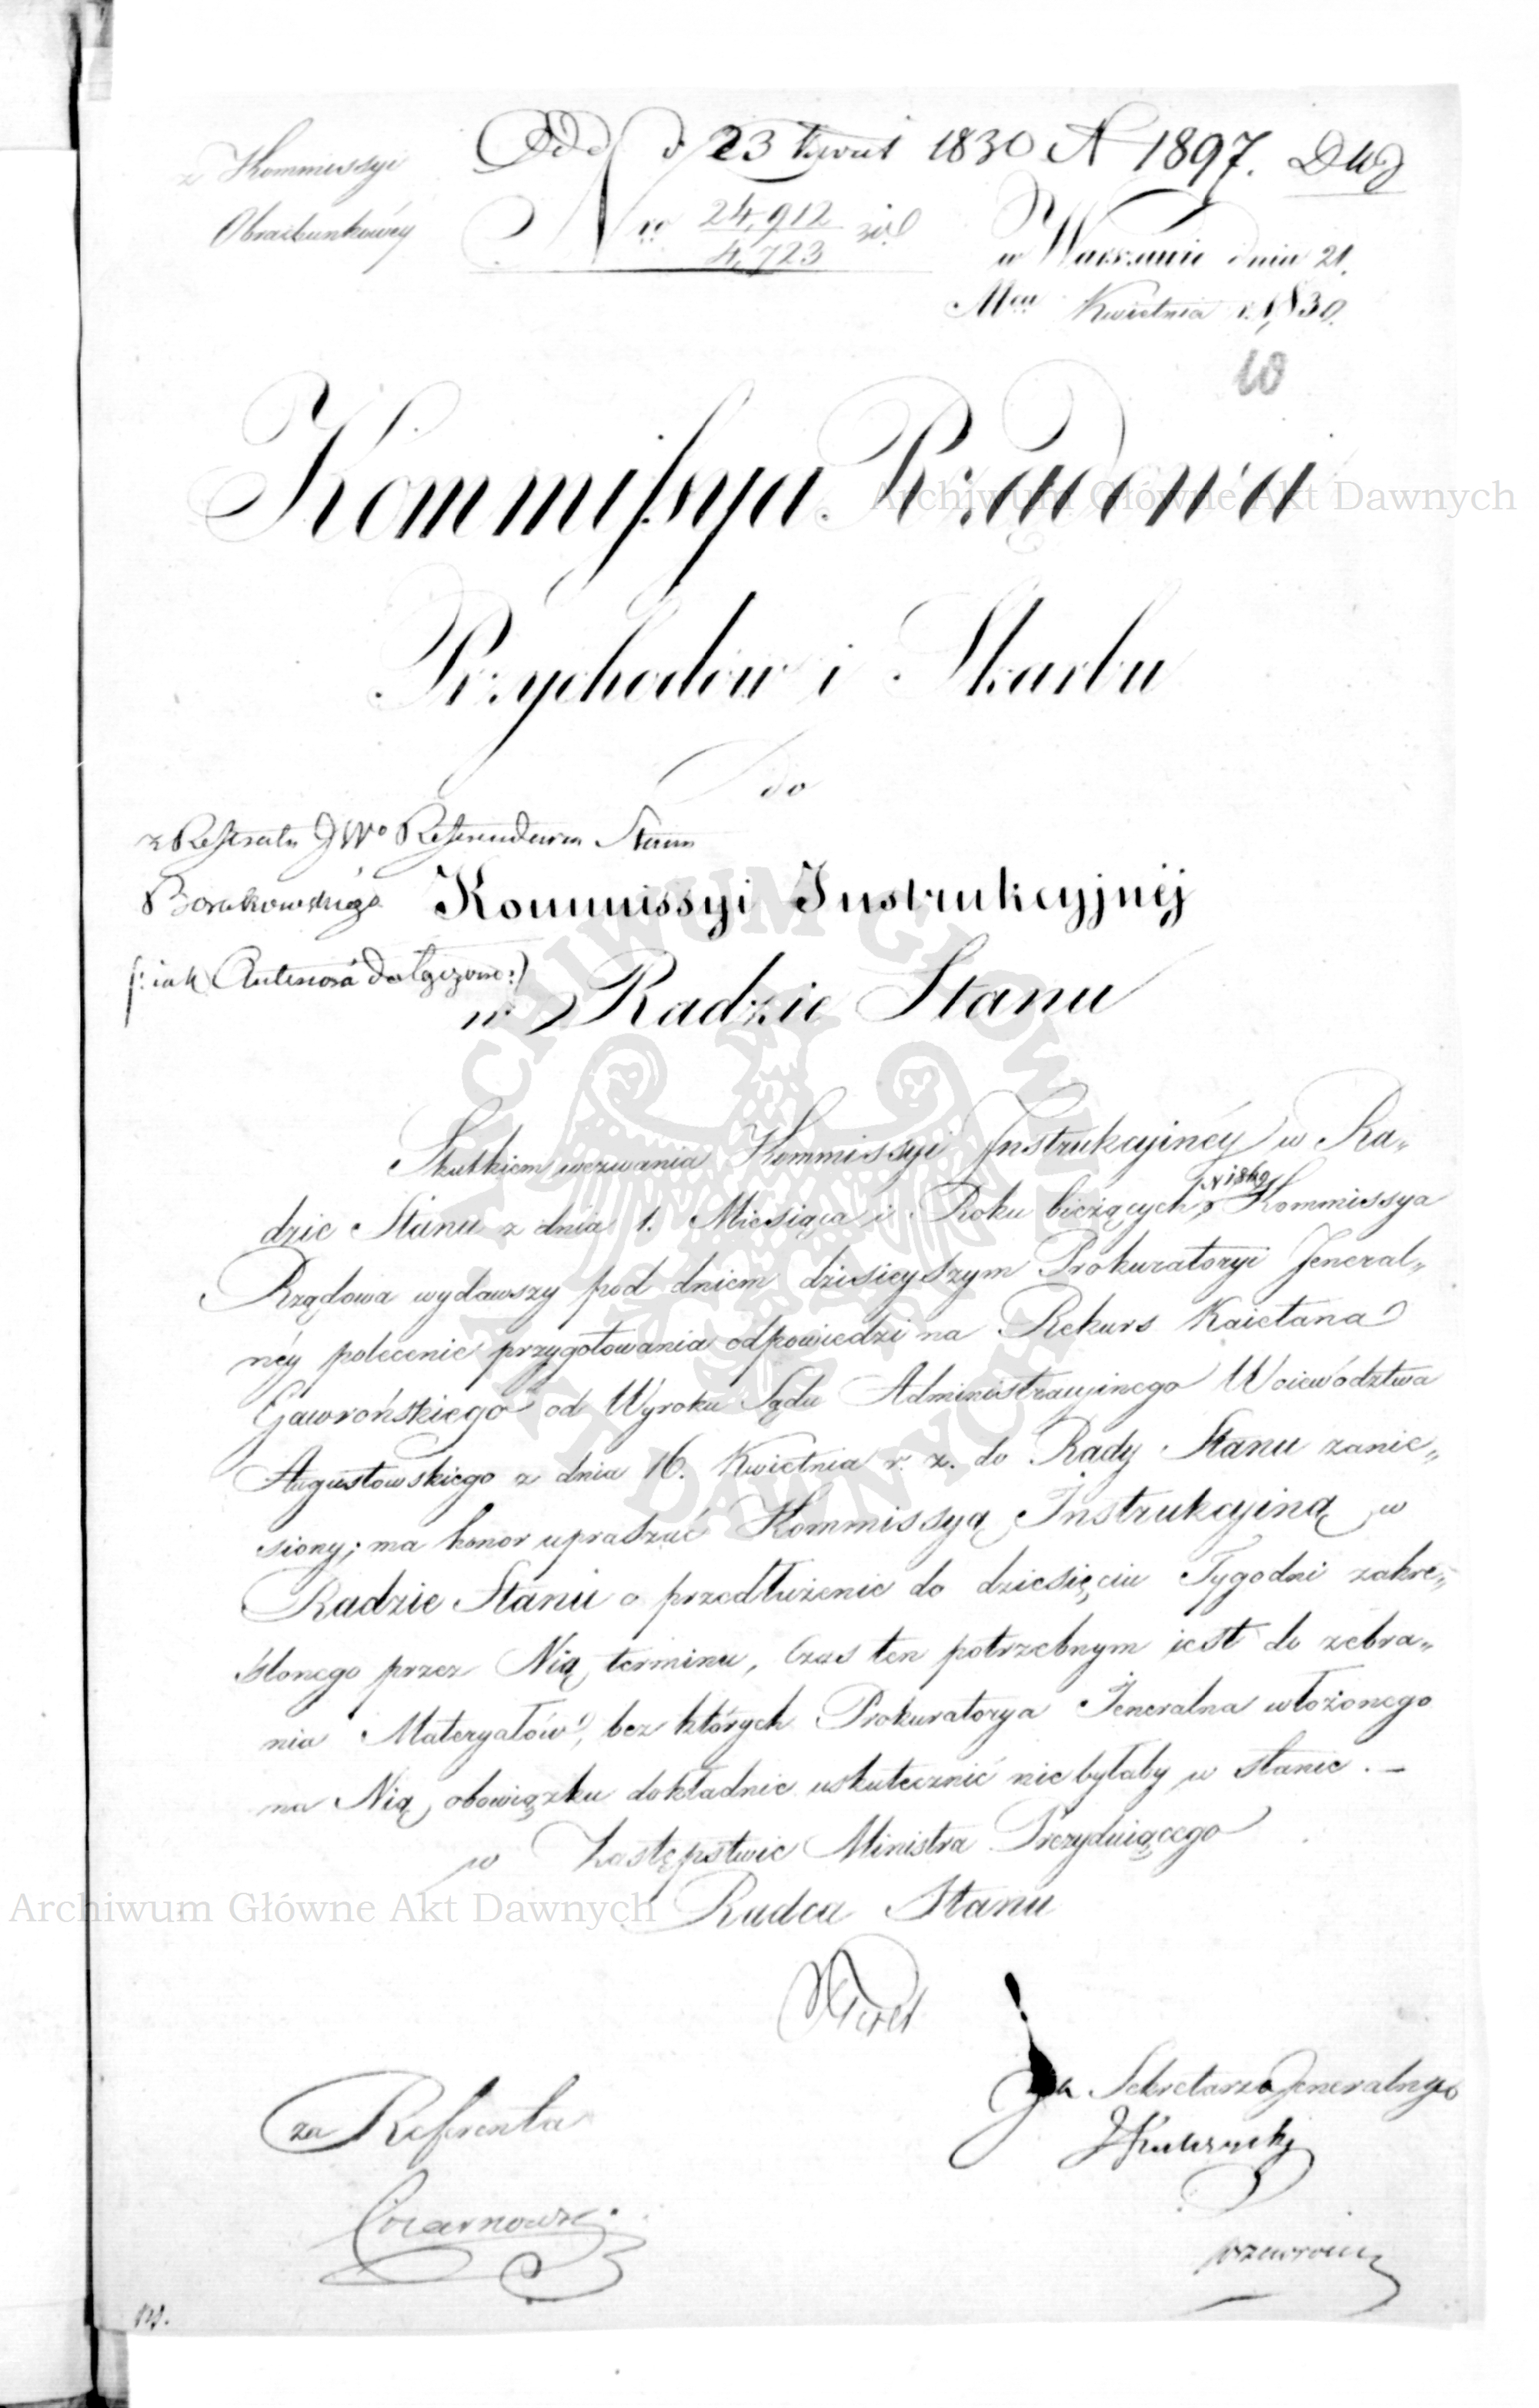 z Kommissyi
Obrachunkowéy
d 23 Kwiet 1830 N 1897.
Nro 24,912
4,723
w Warszawie dnia 21.
Mca Kwietnia r. 1830.
10
Kommissya Rządowa
Przychodów i Skarbu
do
z Referatu JWo Referendarza Stanu
Kommissyi Instrukcyjnéj
(: iak Antenora dołączone :)
w Radzie Stanu
Skutkiem wezwania Kommissyi Instrukcyinéy w Ra„
dzie Stanu z dnia 1. Miesiąca i Roku bieżących Kommissya
Rządowa wydawszy pod dniem dzisieyszym Prokuratoryi Jeneral„
néy polecenie przygotowania odpowiedzi na Rekurs Kaietana
Gawrońskiego od Wyroku Sądu Administracyinego Woiewództwa
Augustowskiego z dnia 16. Kwietnia r. z. do Rady Stanu zanie„
siony; ma honor upraszać Kommissyą Instrukcyiną w
Radzie Stanu o przedłużenie do dziesięciu Tygodni zakre„
ślonego przez Nią terminu, Czas ten potrzebnym iest do zebra„
nia Materyałów, bez których Prokuratorya Jeneralna włożonego
na Nią obowiązku dokładnie uskutecznić nie byłaby w stanie. —
w Zastępstwie Ministra Prezyduiącego
Radca Stanu
za Referenta
Za Sekretarza Jeneralnego
Archiwum Główne Akt Dawnych
Archiwum Główne Akt Dawnych
ARCHIWUM GŁÓWNE AKT DAWNYCH